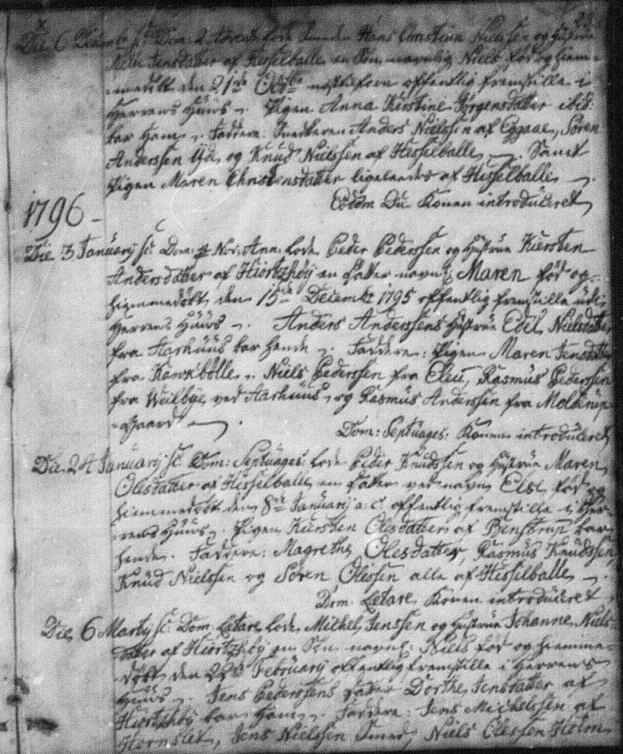 Die 6 Decembr: sc: Dom: 2 Advent: lode Hans Christian Nielsen og Hustrue
Jensdatter af Hesselballe en Søn navnlig Niels fød og hiem-
-medøbt den 21de Octbr: offentlig fremstille i
Herrens Huus. Pigen Anna Kirstine Jørgensdatter ibid:
bar Ham. Faddere: Anders Nielsen af Eggaae, Søren
Anderssen og Knud Nielssen af Hesselballe. Samt
Pigen Maren Christensdatter ligeledes af Hesselballe
Eodem Die Konen introduceret
1796
Die 3 Januarij sc: Dom: p: Nov: Ann: lode Peder Pedersen og Hustrue Kiersten
Andersdatter af Hiortzhøj en Datter navnl: Maren fød og
hiemmedøbt den 15de Decembr 1795 offentlig fremstille udi
Herrens Huus. Anders Anderssens Hustrue Edel Nielsdatter
fra Aarhuus bar hende. Faddere: Pigen Maren Jensdatter
fra Kankbølle, Niels Pederssen fra Elev, Rasmus Pederssen
fra Weilbye ved Aarhuus, og Rasmus Anderssen fra Moldrup-
-Gaard
Dom: Septuages: Konen introduceret
Die 24 Januarij sc: Dom: Septuages: lode Peder Knudssen og Hustrue Maren
Olesdatter af Hesselballe en Datter ved navn Else fød og
hiemmedøbt den 8de Januarij a: c: offentlig fremstille i Her-
rens Huus. Pigen Kiersten Olesdatter af Bendstrup bar
hende. Faddere: Magrethe Olesdatter, Rasmus Knudssen,
Knud Nielssen og Søren Olessen alle af Hesselballe
Dom: Letare, Konen introduceret
Die 6 Martij sc: Dom: Letare lode Michel Jenssen og Hustrue Johanne Niels-
datter af Hiortzhøj en Søn navnl: Niels fød og hiemme-
døbt den 22de Februarij offentlig fremstille i Herrens
Huus. Jens Pederssens Datter Dorthe Jensdatter af
Hiortzhøj bar Ham. Faddere: Jens Michelssen af
Hornslet, Jens Nielssen, Niels Olessen Holm